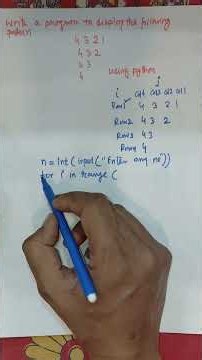 Write a program to display the following
pattern
4 3 2 1
4 3 2
4 3
4
using python
i j
col4 col3 col2 col1
Row1 4 3 2 1
Row2 4 3 2
Row3 4 3
Row4 4
n = int(input("Enter any no"))
for i in range (